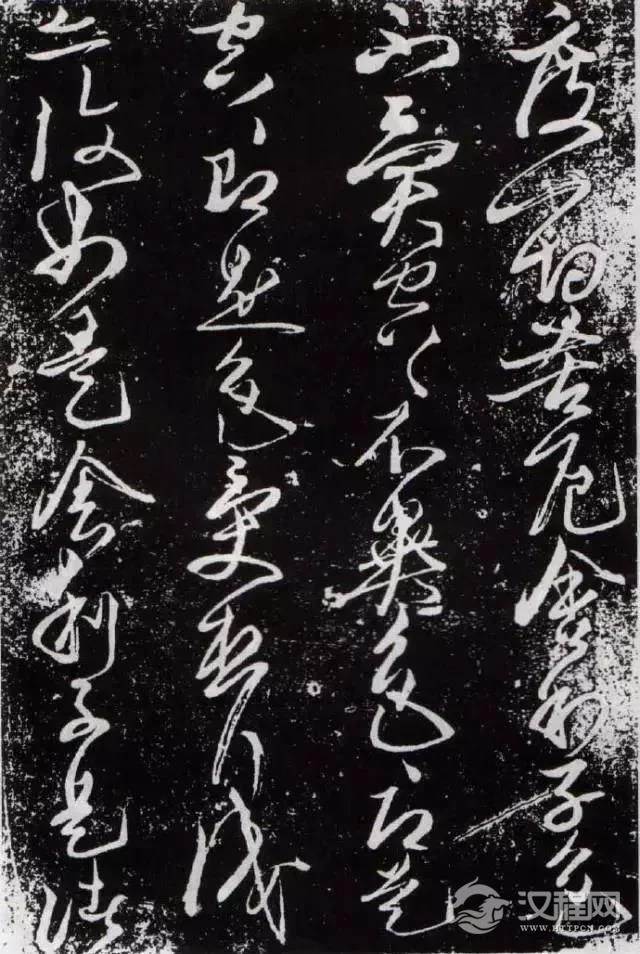 度一切苦厄舍利子色
不異空〻不異色〻即是
空〻即是色受想行識
亦復如是舍利子是諸
汉程网
WWW.HTTPCN.COM